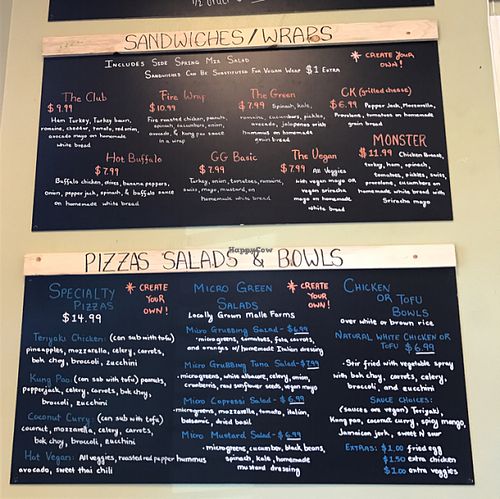 1/2 order
SANDWICHES/WRAPS
INCLUDES SIDE SPRING MIX SALAD
SANDWICHES CAN BE SUBSTITUTED FOR VEGAN WRAP $1 EXTRA
* CREATE YOUR OWN!
The Club
$9.99
Ham, Turkey, Turkey bacon,
romaine, cheddar, tomato, red onion,
avocado mayo on homemade
white bread
Fire Wrap
$10.99
Fire roasted chicken, peanuts,
spinach, cucumbers, onion,
avocado, & kung pao sauce
in a wrap
The Green
$7.99 Spinach, kale,
romaine, cucumbers, pickles,
avocado, jalapenos with
hummus on homemade
grain bread
CK (grilled cheese)
$6.99 Pepper Jack, Mozzarella,
Provolone, tomatoes on homemade
grain bread
Hot Buffalo
$7.99
Buffalo chicken, chives, banana peppers,
onion, pepper jack, spinach, & buffalo sauce
on homemade white bread
GG Basic
$7.99
Turkey, onion, tomatoes, romaine,
swiss, mayo, mustard, on
homemade white bread
The Vegan
$7.99 All Veggies
with vegan mayo or
vegan sriracha
mayo on homemade
white bread
MONSTER
$11.99 Chicken Breast,
turkey, ham, spinach,
tomatoes, pickles, swiss,
provolone, cucumbers on
homemade white bread with
Sriracha mayo
HappyCow
PIZZAS SALADS & BOWLS
SPECIALTY
PIZZAS
$14.99
* CREATE
YOUR
OWN!
Teriyaki Chicken: (can sub w tofu)
pineapples, mozzarella, celery, carrots,
bok choy, broccoli, zucchini
Kung Pao: (can sub w tofu) peanuts,
pepperjack, celery, carrots, bok choy,
broccoli, zucchini
Coconut Curry: (can sub w tofu)
coconut, mozzarella, celery, carrots,
bok choy, broccoli, zucchini
Hot Vegan: All veggies, roasted red pepper hummus
avocado, sweet thai chili
MICRO GREEN
SALADS
* CREATE
YOUR
OWN!
Locally Grown Malle Farms
Micro Grubbing Salad - $6.99
- microgreens, tomatoes, feta, carrots,
and oranges w/ homemade Italian dressing
Micro Grubbing Tuna Salad - $7.99
- microgreens, white albacore, celery, onion,
craberries, raw sunflower seeds, vegan mayo
Micro Copressi Salad - $6.99
- microgreens, mozzarella, tomato, italian,
balsamic, dried basil
Micro Mustard Salad - $6.99
- microgreens, cucumber, black beans,
spinach, kale, homemade
mustard dressing
CHICKEN
OR TOFU
BOWLS
over white or brown rice
NATURAL WHITE CHICKEN OR
TOFU $6.99
- Stir fried with vegetable spray
with bok choy, carrots, celery,
broccoli, and zucchini
SAUCE CHOICES:
(sauces are vegan) Teriyaki,
Kung pao, coconut curry, spicy mango,
Jamaican jerk, sweet N sour
EXTRAS: $1.00 fried egg
$1.50 extra chicken
$1.00 extra veggies